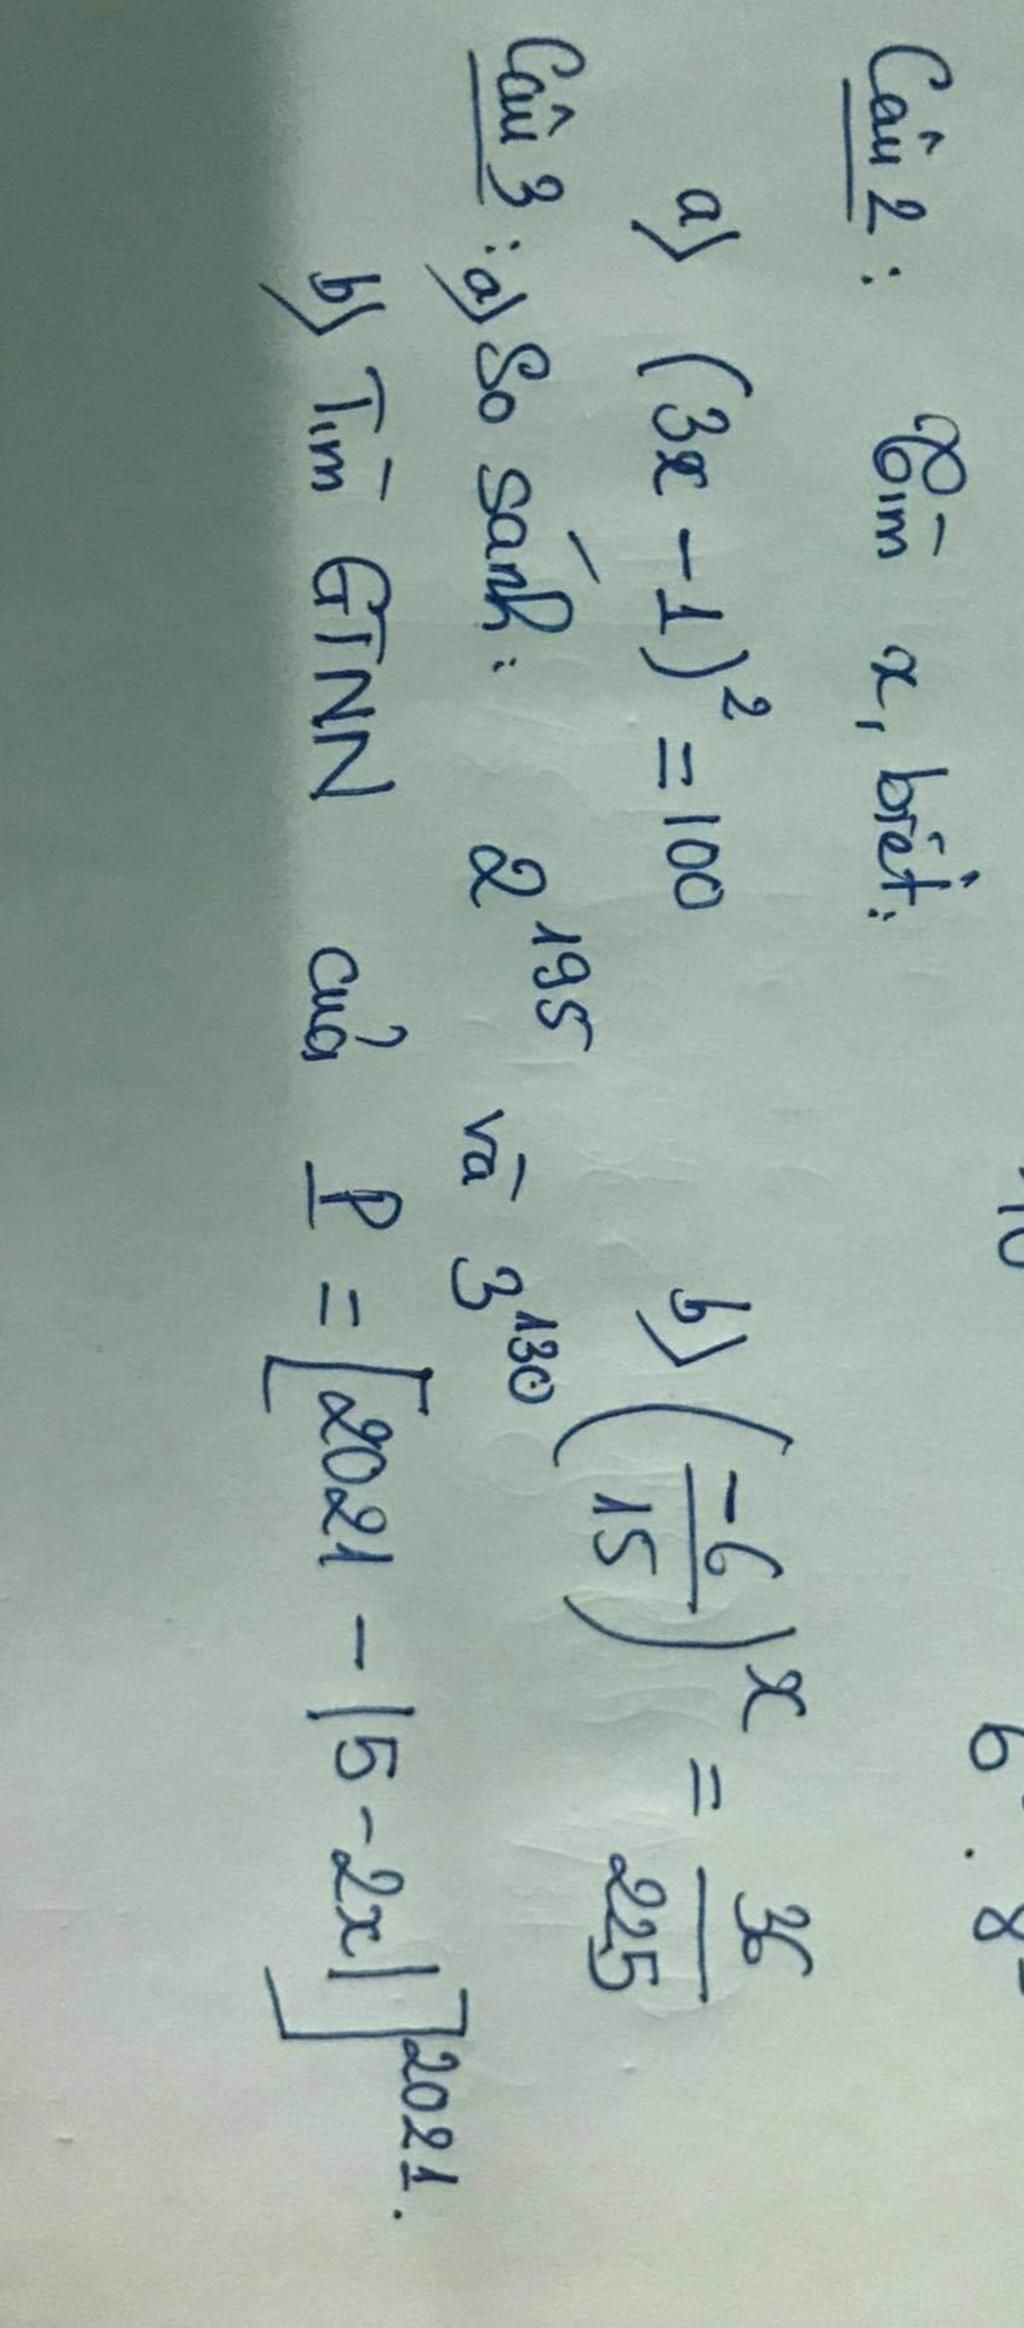 Câu 2: Tìm x, biết:
a) (3x - 1)² = 100 b) (-6/15)ˣ = 36/225
Câu 3: a) So sánh: 2¹⁹⁵ và 3¹³⁰
b) Tìm GTNN của P = [2021 - |5 - 2x|]²⁰²¹.